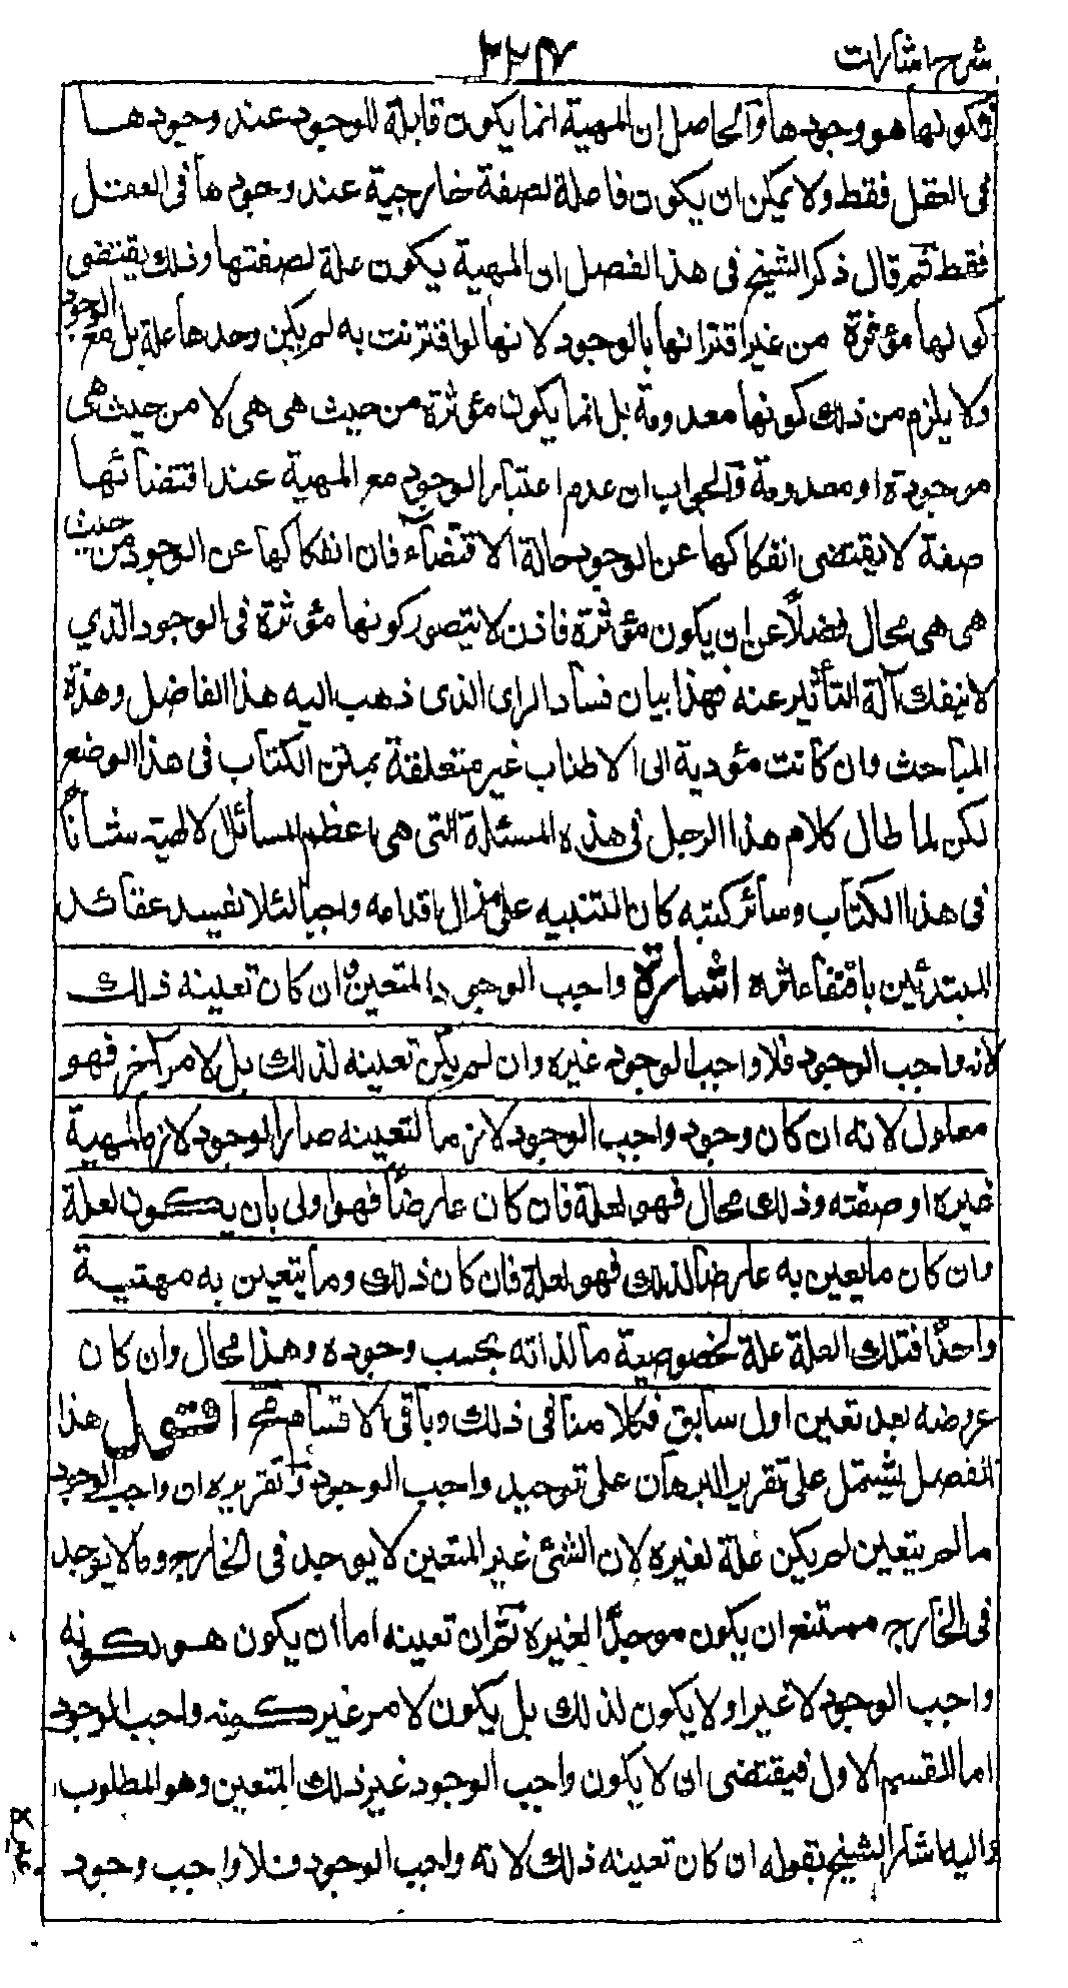 شرح اشارات
٢٢٧
فكونها هو وجودها وآلحاصل ان المهية انما يكون قابلة للوجود عند وجودها
فى العقل فقط ولا يمكن ان يكون فاعلة لصفة خارجية عند وجودها فى العقل
فقط ثم قال ذكر الشيخ فى هذا الفصل ان المهية يكون علة لصفتها وذلك يقتضى
كونها مؤثرة من غير اقترانها بالوجود لانها لو اقترنت به لم يكن وحدها علة بل مع الوجود
ولا يلزم من ذلك كونها معدومة بل انما يكون مؤثرة من حيث هى هى لا من حيث هى
موجودة او معدومة وآلجواب ان عدم اعتبار الوجود مع المهية عند اقتضائها
صفة لا يقتضى انفكاكها عن الوجود حالة الاقتضآء فان انفكاكها عن الوجود من حيث
هى هى محال فضلاً عن ان يكون مؤثرة فاذن لا يتصور كونها مؤثرة فى الوجود الذي
لا ينفك آلة التأثير عنه فهذا بيان فساد الراى الذى ذهب اليه هذا الفاضل وهذة
المباحث وان كانت مؤدية الى الاطناب غير متعلقة بمتن الكتاب فى هذا الوضع
لكن لما طال كلام هذا الرجل فى هذه المسئلة التى هى اعظم المسائل الالهية شانًا
فى هذا الكتاب وسائر كتبه كان التنبيه على مزال اقدامه واجبا لئلا تفسد عقائد
المبتدئين باقتفاء اثره اشارة واجب الوجود المتعين ان كان تعينه ذلك
لانه واجب الوجود فلا واجب الوجود غيره وان لم يكن تعينه لذلك بل لامر آخر فهو
معلول لانه ان كان وجود واجب الوجود لازما لتعينه صار الوجود لازما لمهية
غيره او صفته وذلك محال فهو لعلة فان كان عارضاً فهو اولى بان يكون لعلة
وان كان ما يعين به عارضا لذلك فهو لعلة فان كان ذلك وما يتعين به مهيتية
واحدًا فتلك العلة علة لخصوصية ما لذاته بحسب وجوده وهذا محال وان كان
عروضه بعد تعين اول سابق فكلامنا فى ذلك وباقى الاقسام مح اقول هذا
الفصل يشتمل على تقرير البرهان على توحيد واجب الوجود وتقريره ان واجب الوجود
ما لم يتعين لم يكن علة لغيره لان الشئ غير المتعين لا يوجد فى الخارج وما لا يوجد
فى الخارج ممتنع ان يكون موجدًا لغيره ثم ان تعينه اما ان يكون هو كونه
واجب الوجود لا غير او لا يكون لذلك بل يكون لامر غير كونه واجب الوجود
اما القسم الاول فيقتضى ان لا يكون واجب الوجود غير ذلك المتعين وهو المطلوب
واليه اشار الشيخ بقوله ان كان تعينه ذلك لانه واجب الوجود فلا واجب وجود
غيره